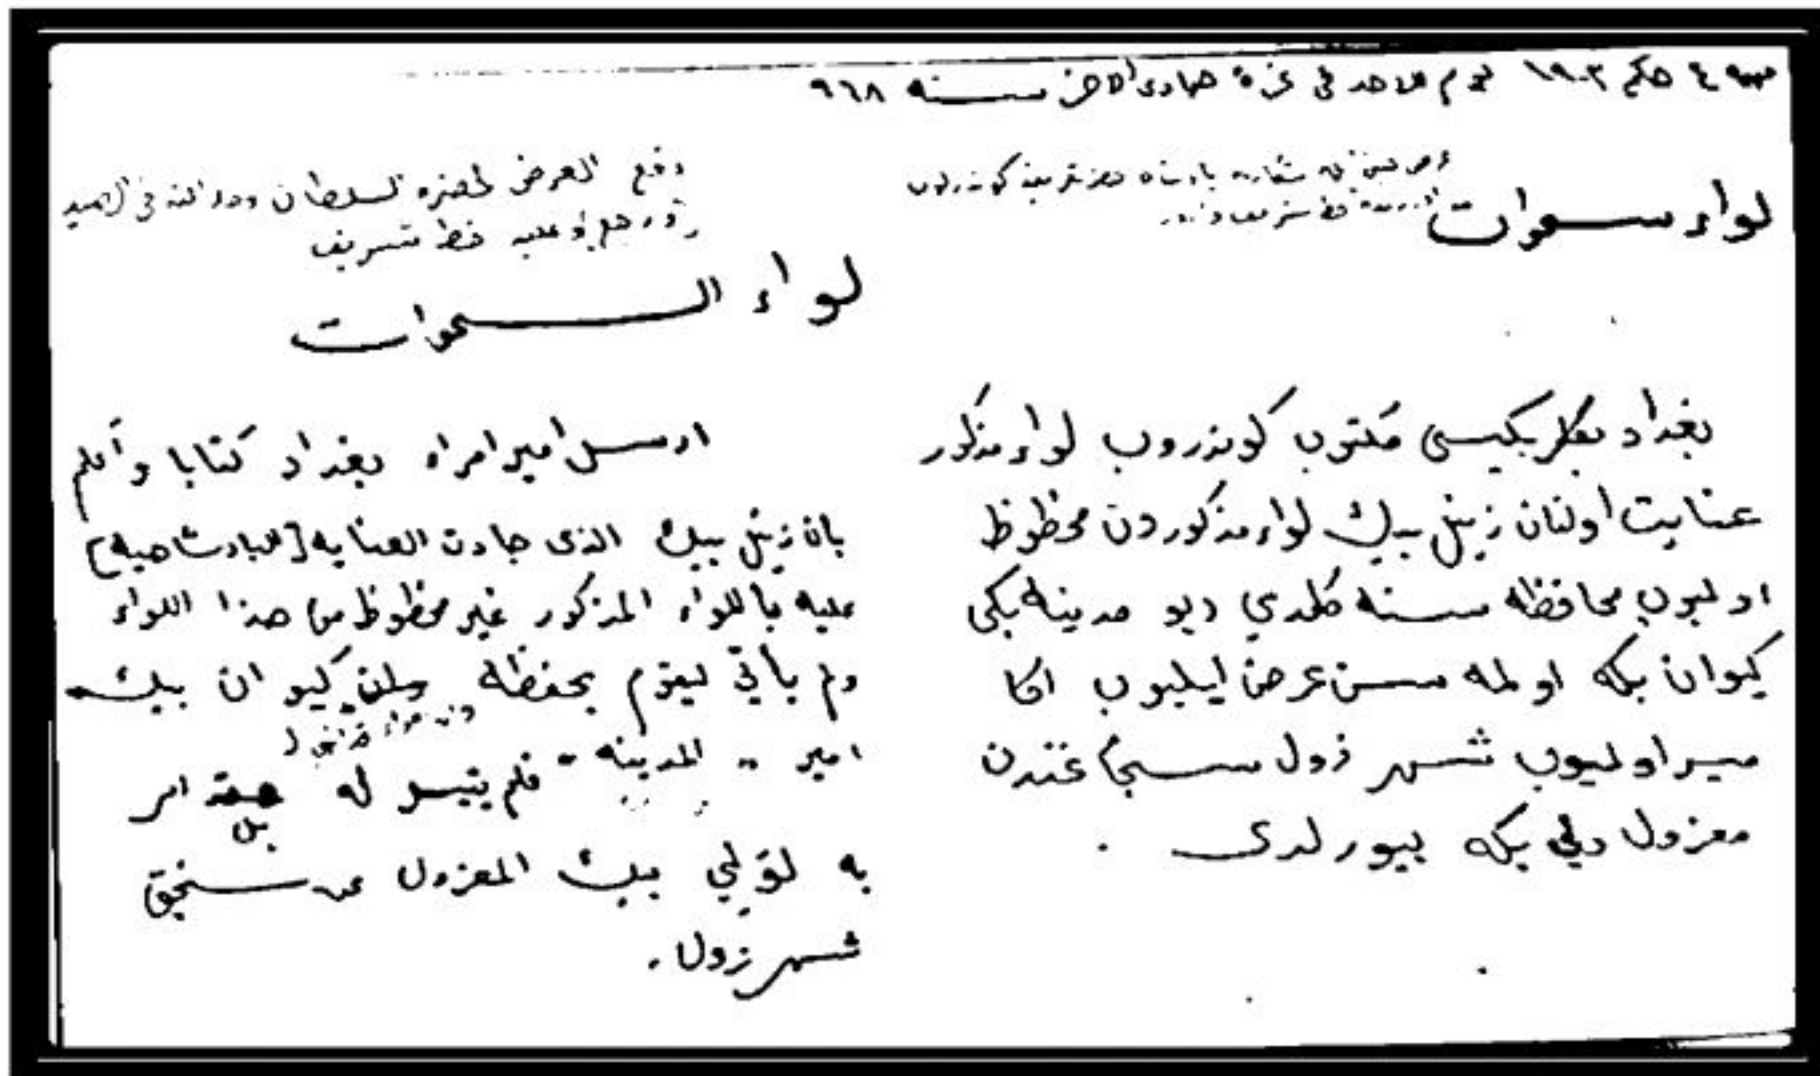 حكم ١٩٠٣ يوم الاحد في غرة جمادى الاخر سنه ٩٦٨
لواء سموات
بغداد بكلربكيسى مكتوب كوندروب لواء مذكور
عنايت اولنان زينل بيك لواء مذكوردن محظوظ
اولميوب محافظه سنه كلمدي ديو مدينه بكى
كيوان بكه اولمه سن عرض ايليوب اكا
ميسر اولميوب شهر زول سنجاغندن
معزول ولي بكه بيورلدى .
دفع العرض لحضرة السلطان في الصيد
وعليه خط شريف
لواء السموات
ارسل امير امراء بغداد كتابا وأعلم
بان زينل بيك الذى جادت العنايه [البادشاهيه]
عليه باللواء المذكور غير محظوظ من هذا اللواء
ولم يأتي ليقوم بحفظه كيوان بيك
امير المدينه فلم يتيسر له بل امر
به لولي بيك المعزول عن سنجق
شهر زول .